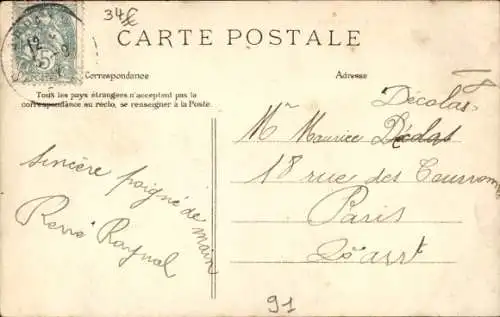 34f
CARTE POSTALE
Correspondance
Adresse
Tous les pays étrangers n'acceptent pas la
correspondance au recto, se renseigner à la Poste.
Décolas
Mr Maurice Décolas
18 rue des
Paris
arrt
Sincère poignée de main
Raynal
91